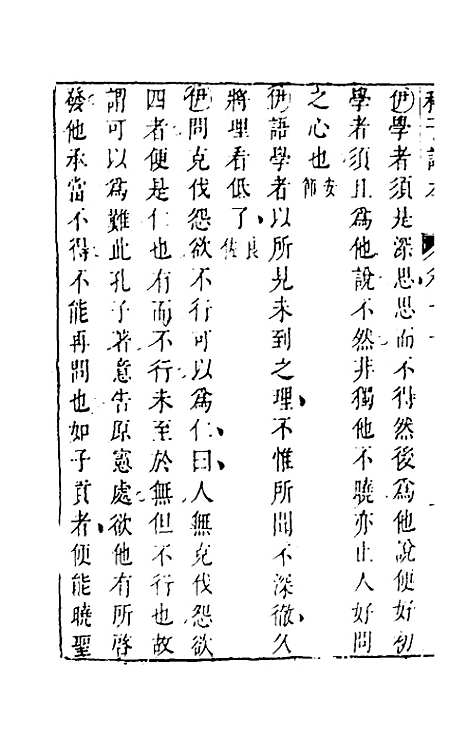 伊學者須是深思思而不得然後為他說便好初
學者須且為他說不然非獨他不曉亦止人好問
之心也安節
伊語學者以所見未到之理不惟所聞不深徹久
將理看低了良佐
伊問克伐怨欲不行可以為仁曰人無克伐怨欲
四者便是仁也有而不行未至於無但不行也故
謂可以為難此孔子著意告原憲處欲他有所啓
發他承當不得不能再問也如子貢者便能曉聖